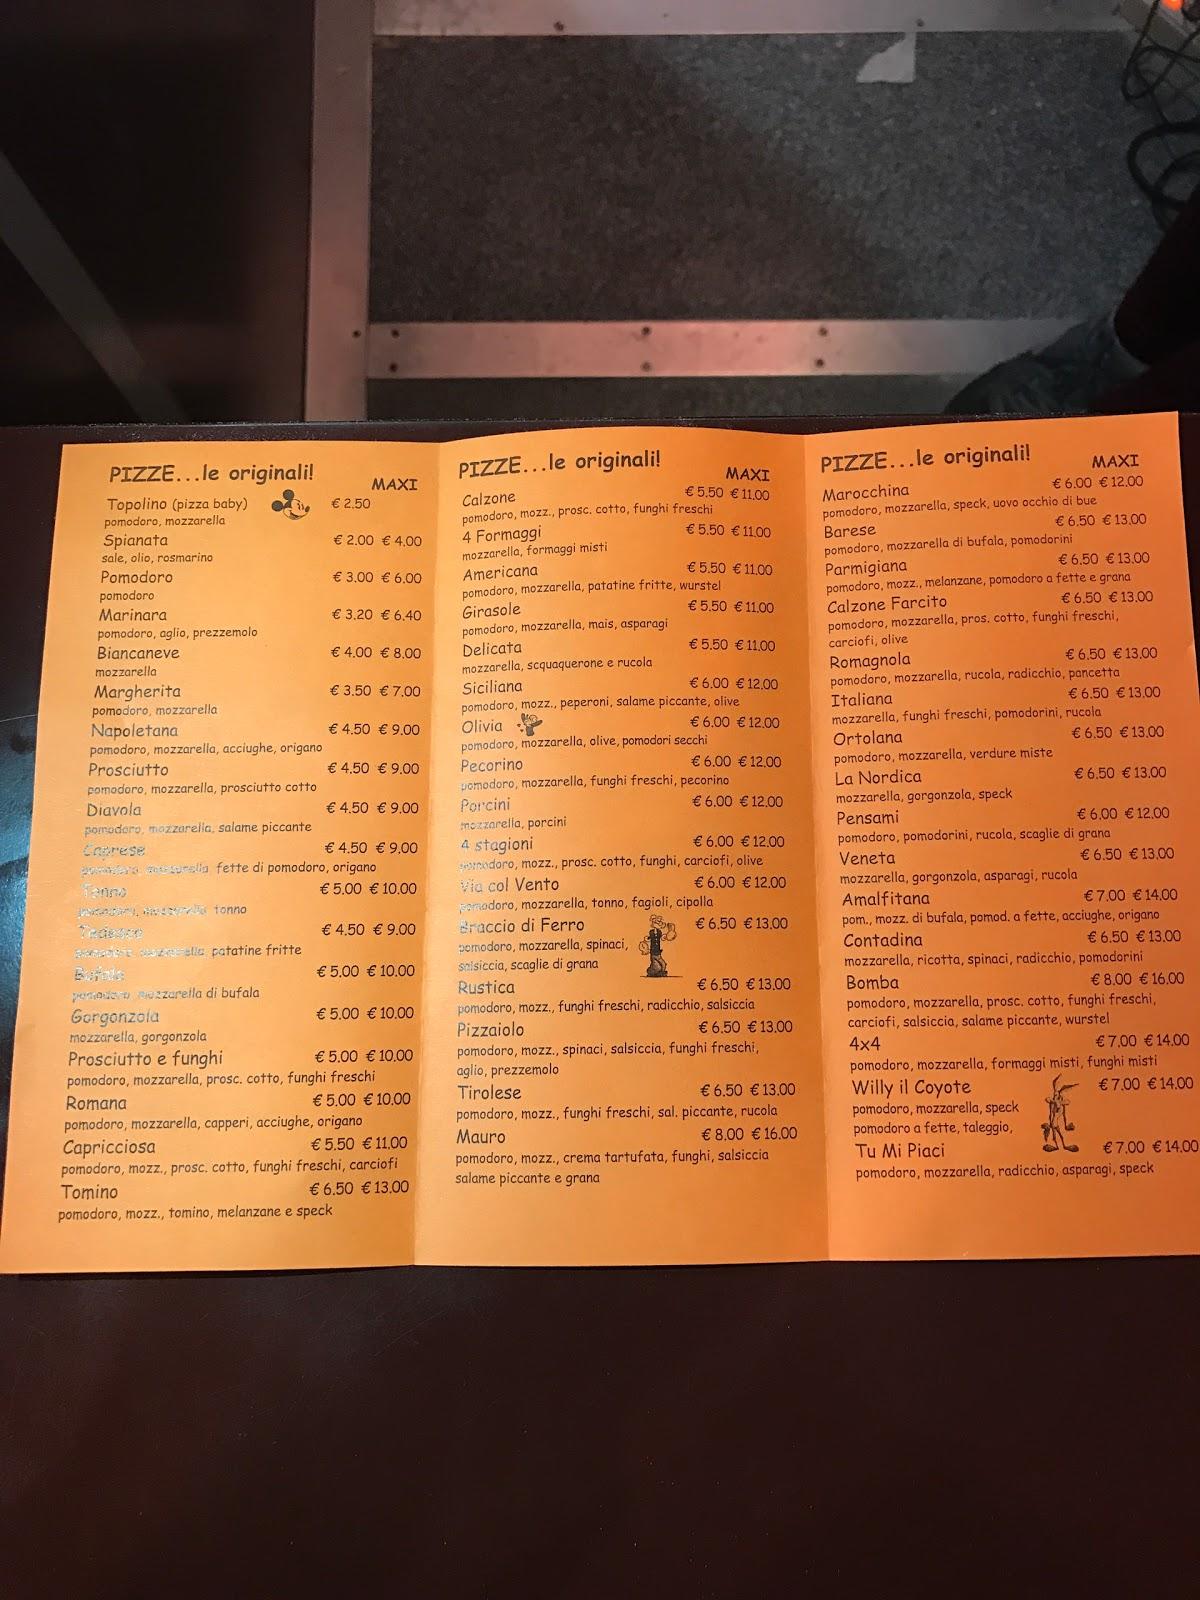 PIZZE...le originali!
MAXI
Topolino (pizza baby) € 2.50
pomodoro, mozzarella
Spianata € 2.00 € 4.00
sale, olio, rosmarino
Pomodoro € 3.00 € 6.00
pomodoro
Marinara € 3.20 € 6.40
pomodoro, aglio, prezzemolo
Biancaneve € 4.00 € 8.00
mozzarella
Margherita € 3.50 € 7.00
pomodoro, mozzarella
Napoletana € 4.50 € 9.00
pomodoro, mozzarella, acciughe, origano
Prosciutto € 4.50 € 9.00
pomodoro, mozzarella, prosciutto cotto
Diavola € 4.50 € 9.00
pomodoro, mozzarella, salame piccante
Caprese € 4.50 € 9.00
pomodoro, mozzarella, fette di pomodoro, origano
Tonno € 5.00 € 10.00
pomodoro, mozzarella, tonno
Tedesca € 4.50 € 9.00
pomodoro, mozzarella, patatine fritte
Bufala € 5.00 € 10.00
pomodoro, mozzarella di bufala
Gorgonzola € 5.00 € 10.00
mozzarella, gorgonzola
Prosciutto e funghi € 5.00 € 10.00
pomodoro, mozzarella, prosc. cotto, funghi freschi
Romana € 5.00 € 10.00
pomodoro, mozzarella, capperi, acciughe, origano
Capricciosa € 5.50 € 11.00
pomodoro, mozz., prosc. cotto, funghi freschi, carciofi
Tomino € 6.50 € 13.00
pomodoro, mozz., tomino, melanzane e speck
PIZZE...le originali!
MAXI
Calzone € 5.50 € 11.00
pomodoro, mozz., prosc. cotto, funghi freschi
4 Formaggi € 5.50 € 11.00
mozzarella, formaggi misti
Americana € 5.50 € 11.00
pomodoro, mozzarella, patatine fritte, wurstel
Girasole € 5.50 € 11.00
pomodoro, mozzarella, mais, asparagi
Delicata € 5.50 € 11.00
mozzarella, scquaquerone e rucola
Siciliana € 6.00 € 12.00
pomodoro, mozz., peperoni, salame piccante, olive
Olivia € 6.00 € 12.00
pomodoro, mozzarella, olive, pomodori secchi
Pecorino € 6.00 € 12.00
pomodoro, mozzarella, funghi freschi, pecorino
Porcini € 6.00 € 12.00
mozzarella, porcini
4 stagioni € 6.00 € 12.00
pomodoro, mozz., prosc. cotto, funghi, carciofi, olive
Via col Vento € 6.00 € 12.00
pomodoro, mozzarella, tonno, fagioli, cipolla
Braccio di Ferro € 6.50 € 13.00
pomodoro, mozzarella, spinaci,
salsiccia, scaglie di grana
Rustica € 6.50 € 13.00
pomodoro, mozz., funghi freschi, radicchio, salsiccia
Pizzaiolo € 6.50 € 13.00
pomodoro, mozz., spinaci, salsiccia, funghi freschi,
aglio, prezzemolo
Tirolese € 6.50 € 13.00
pomodoro, mozz., funghi freschi, sal. piccante, rucola
Mauro € 8.00 € 16.00
pomodoro, mozz., crema tartufata, funghi, salsiccia
salame piccante e grana
PIZZE...le originali!
MAXI
Marocchina € 6.00 € 12.00
pomodoro, mozzarella, speck, uovo occhio di bue
Barese € 6.50 € 13.00
pomodoro, mozzarella di bufala, pomodorini
Parmigiana € 6.50 € 13.00
pomodoro, mozz., melanzane, pomodoro a fette e grana
Calzone Farcito € 6.50 € 13.00
pomodoro, mozzarella, pros. cotto, funghi freschi,
carciofi, olive
Romagnola € 6.50 € 13.00
pomodoro, mozzarella, rucola, radicchio, pancetta
Italiana € 6.50 € 13.00
mozzarella, funghi freschi, pomodorini, rucola
Ortolana € 6.50 € 13.00
pomodoro, mozzarella, verdure miste
La Nordica € 6.50 € 13.00
mozzarella, gorgonzola, speck
Pensami € 6.00 € 12.00
pomodoro, pomodorini, rucola, scaglie di grana
Veneta € 6.50 € 13.00
mozzarella, gorgonzola, asparagi, rucola
Amalfitana € 7.00 € 14.00
pom., mozz. di bufala, pomod. a fette, acciughe, origano
Contadina € 6.50 € 13.00
mozzarella, ricotta, spinaci, radicchio, pomodorini
Bomba € 8.00 € 16.00
pomodoro, mozzarella, prosc. cotto, funghi freschi,
carciofi, salsiccia, salame piccante, wurstel
4x4 € 7.00 € 14.00
pomodoro, mozzarella, formaggi misti, funghi misti
Willy il Coyote € 7.00 € 14.00
pomodoro, mozzarella, speck
pomodoro a fette, taleggio,
Tu Mi Piaci € 7.00 € 14.00
pomodoro, mozzarella, radicchio, asparagi, speck